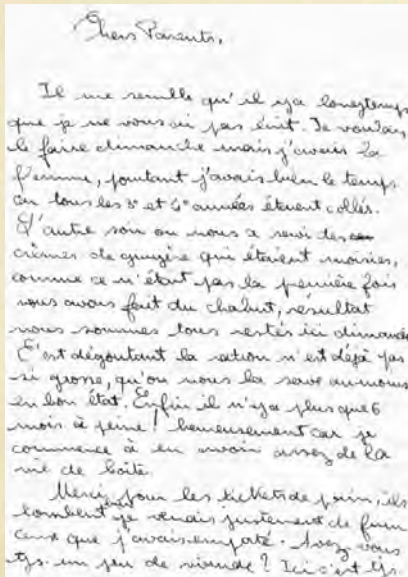 Chers Parents,
Il me semble qu'il y a longtemps
que je ne vous ai pas écrit. Je voulais
le faire dimanche mais j'avais la
flemme, pourtant j'avais bien le temps
car tous les 3e et 4e années étaient collés.
L'autre soir on nous a servi des
crèmes de gruyère qui étaient moisies,
comme ce n'était pas la première fois
nous avons fait du chahut, résultat
nous sommes tous restés ici dimanche
C'est dégoutant la ration n'est déjà pas
si grosse, qu'on nous la serve au moins
en bon état. Enfin il n'y a plus que 6
mois à peine ! heureusement car je
commence à en avoir assez de la
vie de boîte.
Merci pour les tickets de pain, ils
tombent je venais justement de finir
ceux que j'avais emporté. Avez vous
tjs. un peu de viande ? Ici c'est tjs.